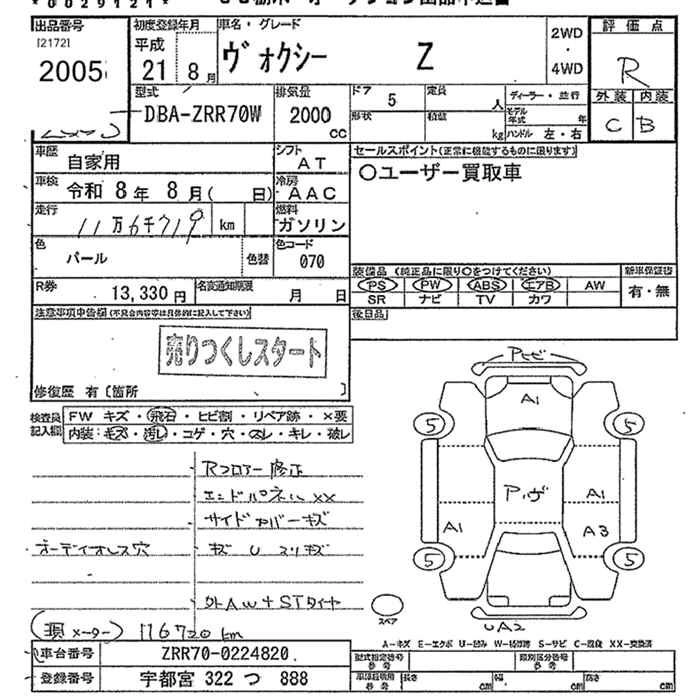 *0029121*
出品番号
[2172]
2005
初度登録年月
平成
21 8月
車名・グレード
ヴォクシー Z
2WD
・
4WD
評価点
R
外装 内装
C B
型式
DBA-ZRR70W
排気量
2000
CC
ドア
5
定員
人
形状
積載
kg
ディーラー・並行
モデル年式 年
ハンドル 左・右
車歴
自家用
シフト
AT
車検
令和 8年 8月( 日)
冷房
AAC
走行
11万6千719 km
燃料
ガソリン
色
パール
色替
色コード
070
R券
13,330円
名変通知期限
月 日
セールスポイント(正常に機能するものに限ります)
○ユーザー買取車
装備品 (純正品に限り○をつけてください)
新車保証書
PS PW ABS エアB AW
SR ナビ TV カワ
有・無
後日品
注意事項申告欄(不具合内容等は具体的に記入して下さい)
売りつくしスタート
修復歴 有〔箇所 〕
検査員記入欄
FW キズ・飛石・ヒビ割・リペア跡・×要
内装:キズ・汚レ・コゲ・穴・スレ・キレ・破レ
Rフロアー修正
エンドパネルXX
サイドカバーキズ
オーディオレス穴
キズ U スリキズ
外AW+STタイヤ
(現メーター) 116720 km
アヒビ
A1
5
5
アヴ
A1
A1
A3
5
5
UA2
スペア
A-キズ E-エクボ U-凹み W-補修跡 S-サビ C-腐食 XX-交換済
車台番号
ZRR70-0224820
登録番号
宇都宮 322 つ 888
型式指定番号
参考
類別区分番号
参考
車検証積用
参考
長さ
cm
幅
cm
高さ
cm